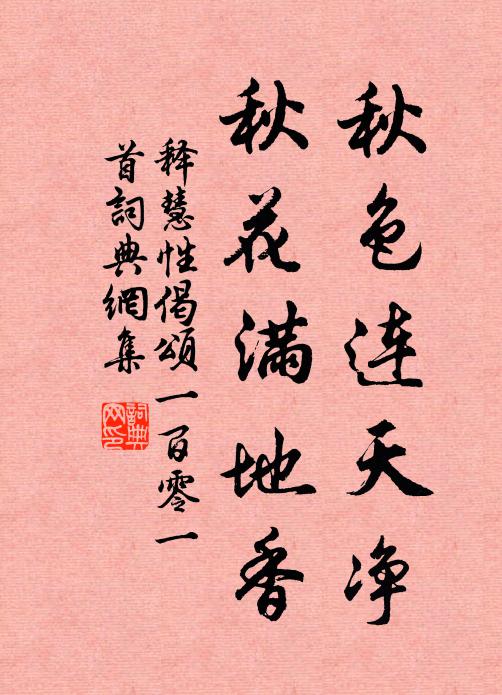 秋色连天净
秋花满地香
释慧性偈颂一百零一
首词典网集
词典网印